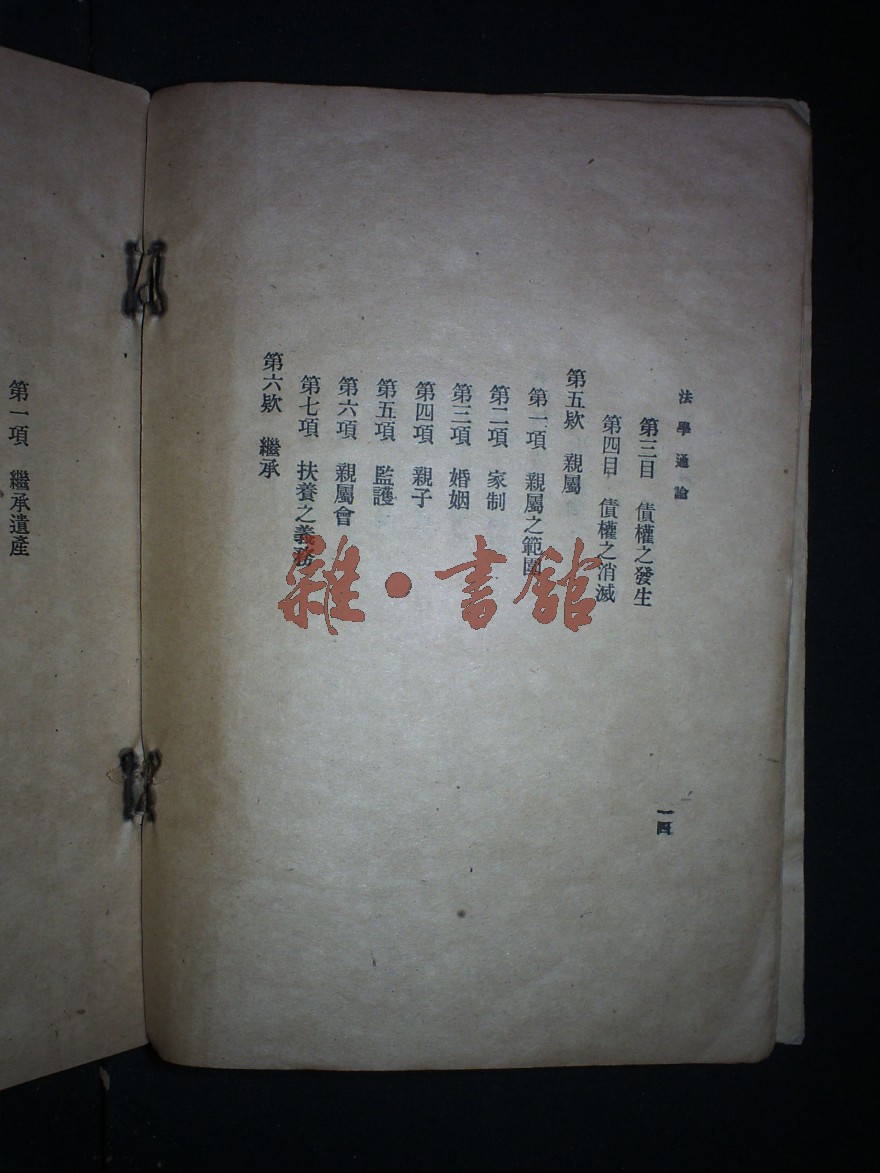 法學通論
第三目 債權之發生
第四目 債權之消滅
第五欵 親屬
第一項 親屬之範圍
第二項 家制
第三項 婚姻
第四項 親子
第五項 監護
第六項 親屬會
第七項 扶養之義務
第六欵 繼承
一四
第一項 繼承遺產
雜·書館